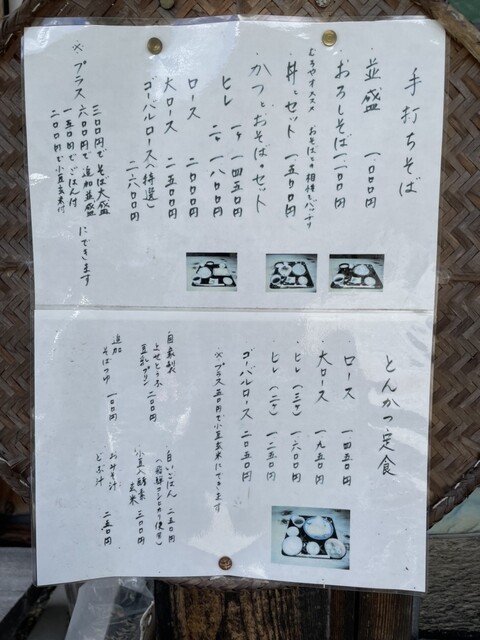 手打ちそば
・並盛 一、〇〇〇円
・おろしそば 一、一〇〇円
むろやオススメ おそばとの相性もバッチリ
・丼とセット 一、五〇〇円
・かつとおそば・セット
ヒレ 一ケ 一、四五〇円
二ケ 一、八〇〇円
ロース 二、〇〇〇円
大ロース 二、五〇〇円
ゴーバルロース(特選) 二、六〇〇円
※プラス
三〇〇円でそば大盛
六〇〇円で追加並盛
一五〇円でごはん付
二〇〇円で小豆玄米付
にできます
とんかつ定食
ロース 一、四五〇円
大ロース 一、九五〇円
ヒレ(三ケ) 一、六〇〇円
ヒレ(二ケ) 一、二五〇円
ゴーバルロース 二、〇五〇円
※プラス五〇円で小豆玄米にできます
自家製
よせとうふ
豆乳プリン 二〇〇円
追加
そばつゆ 一〇〇円
白いごはん 二五〇円
(飛騨コシヒカリ使用)
小豆入酵素玄米 三〇〇円
おみそ汁
とん汁 二五〇円